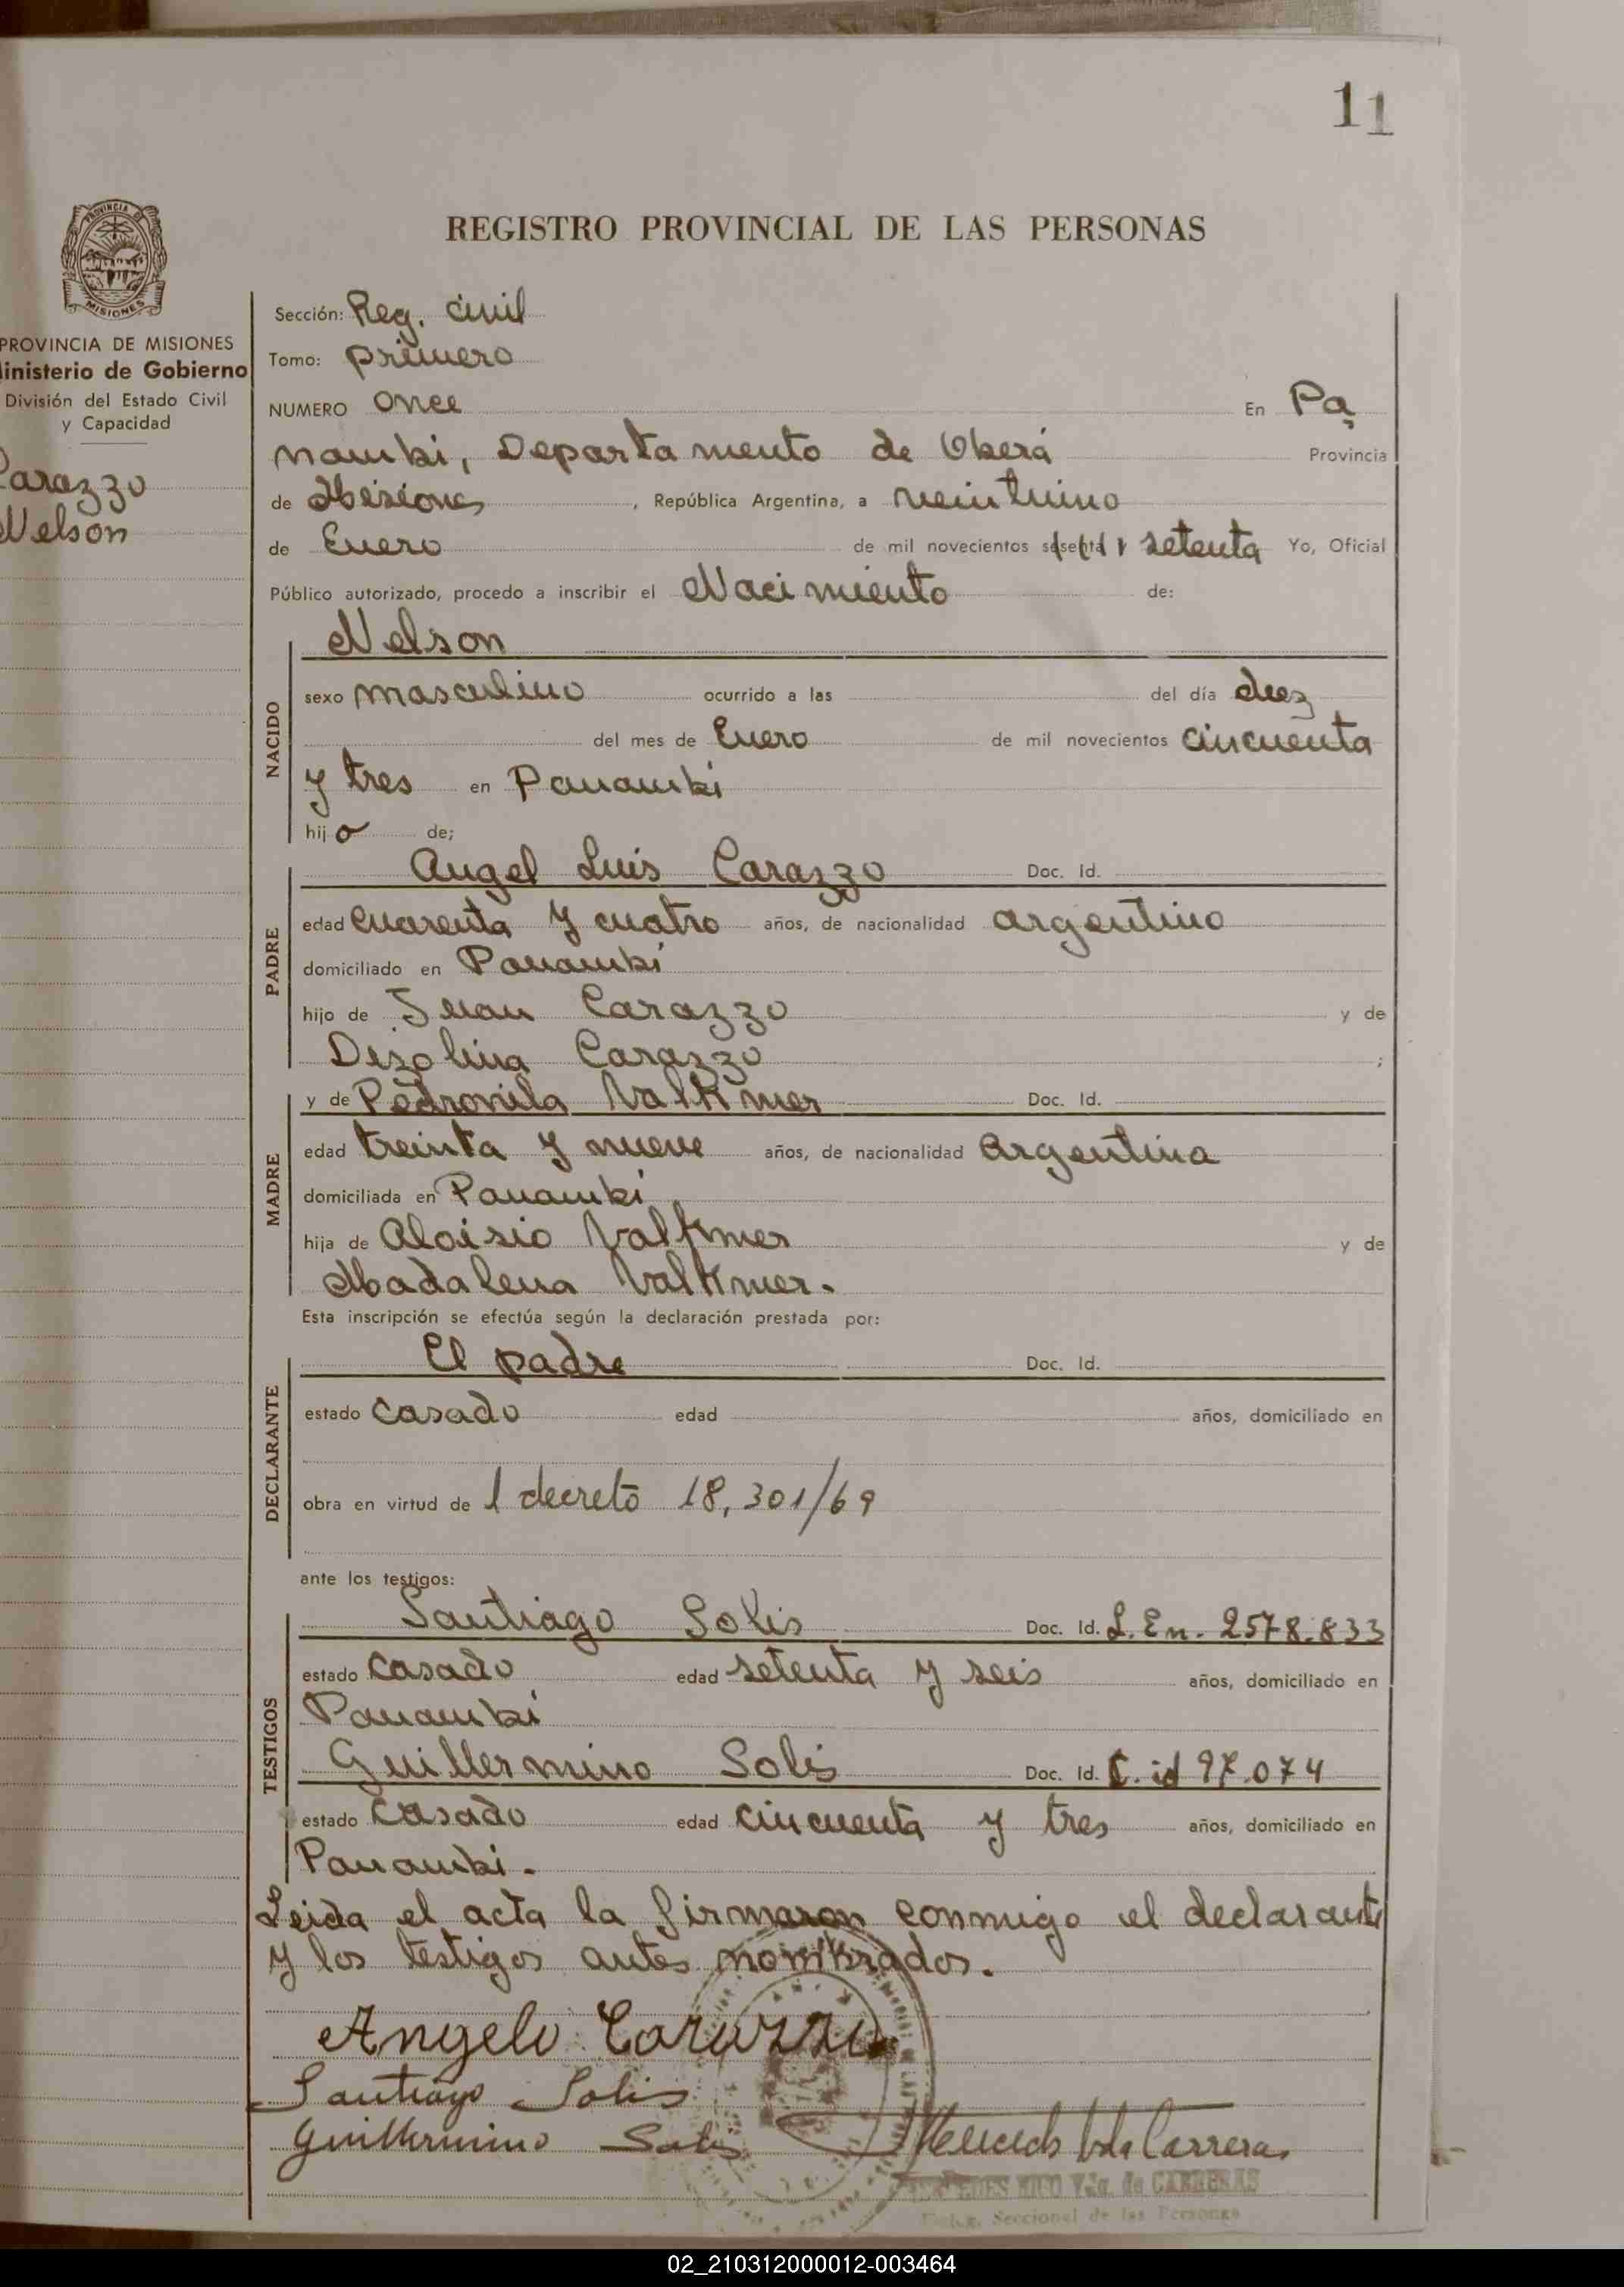 11
PROVINCIA DE
MISIONES
REGISTRO PROVINCIAL DE LAS PERSONAS
PROVINCIA DE MISIONES
inisterio de Gobierno
División del Estado Civil
y Capacidad
Carazzo
Nelson
Sección: Reg. civil
Tomo: primero
NUMERO once En Pa
nambi, Departamento de Oberá Provincia
de Misiones, República Argentina, a veintiuno
de Enero de mil novecientos sesenta setenta Yo, Oficial
Público autorizado, procedo a inscribir el Nacimiento de:
NACIDO
Nelson
sexo masculino ocurrido a las del día diez
del mes de Enero de mil novecientos cincuenta
y tres en Panambi
hijo de;
PADRE
Angel Luis Carazzo Doc. Id.
edad cuarenta y cuatro años, de nacionalidad argentino
domiciliado en Panambi
hijo de Juan Carazzo y de
Dezolina Carazzo ;
MADRE
y de Pedronila Valkmer Doc. Id.
edad treinta y nueve años, de nacionalidad argentina
domiciliada en Panambi
hija de Aloisio Valkmer y de
Madalena Valkmer.
Esta inscripción se efectúa según la declaración prestada por:
DECLARANTE
El padre Doc. Id.
estado casado edad años, domiciliado en
obra en virtud de l decreto 18,301/69
ante los testigos:
TESTIGOS
Santiago Solis Doc. Id. L. En. 2578.833
estado casado edad setenta y seis años, domiciliado en
Panambi
Guillermino Solis Doc. Id. C. id 97.074
estado casado edad cincuenta y tres años, domiciliado en
Panambi.
Leida el acta la firmaron conmigo el declarante
y los testigos antes nombrados.
Angelo Carazzo
Santiago Solis
Guillermino Solis
Mercedes Vda Carreras
Vda. de CARRERAS
Seccional de las Personas
02_210312000012-003464